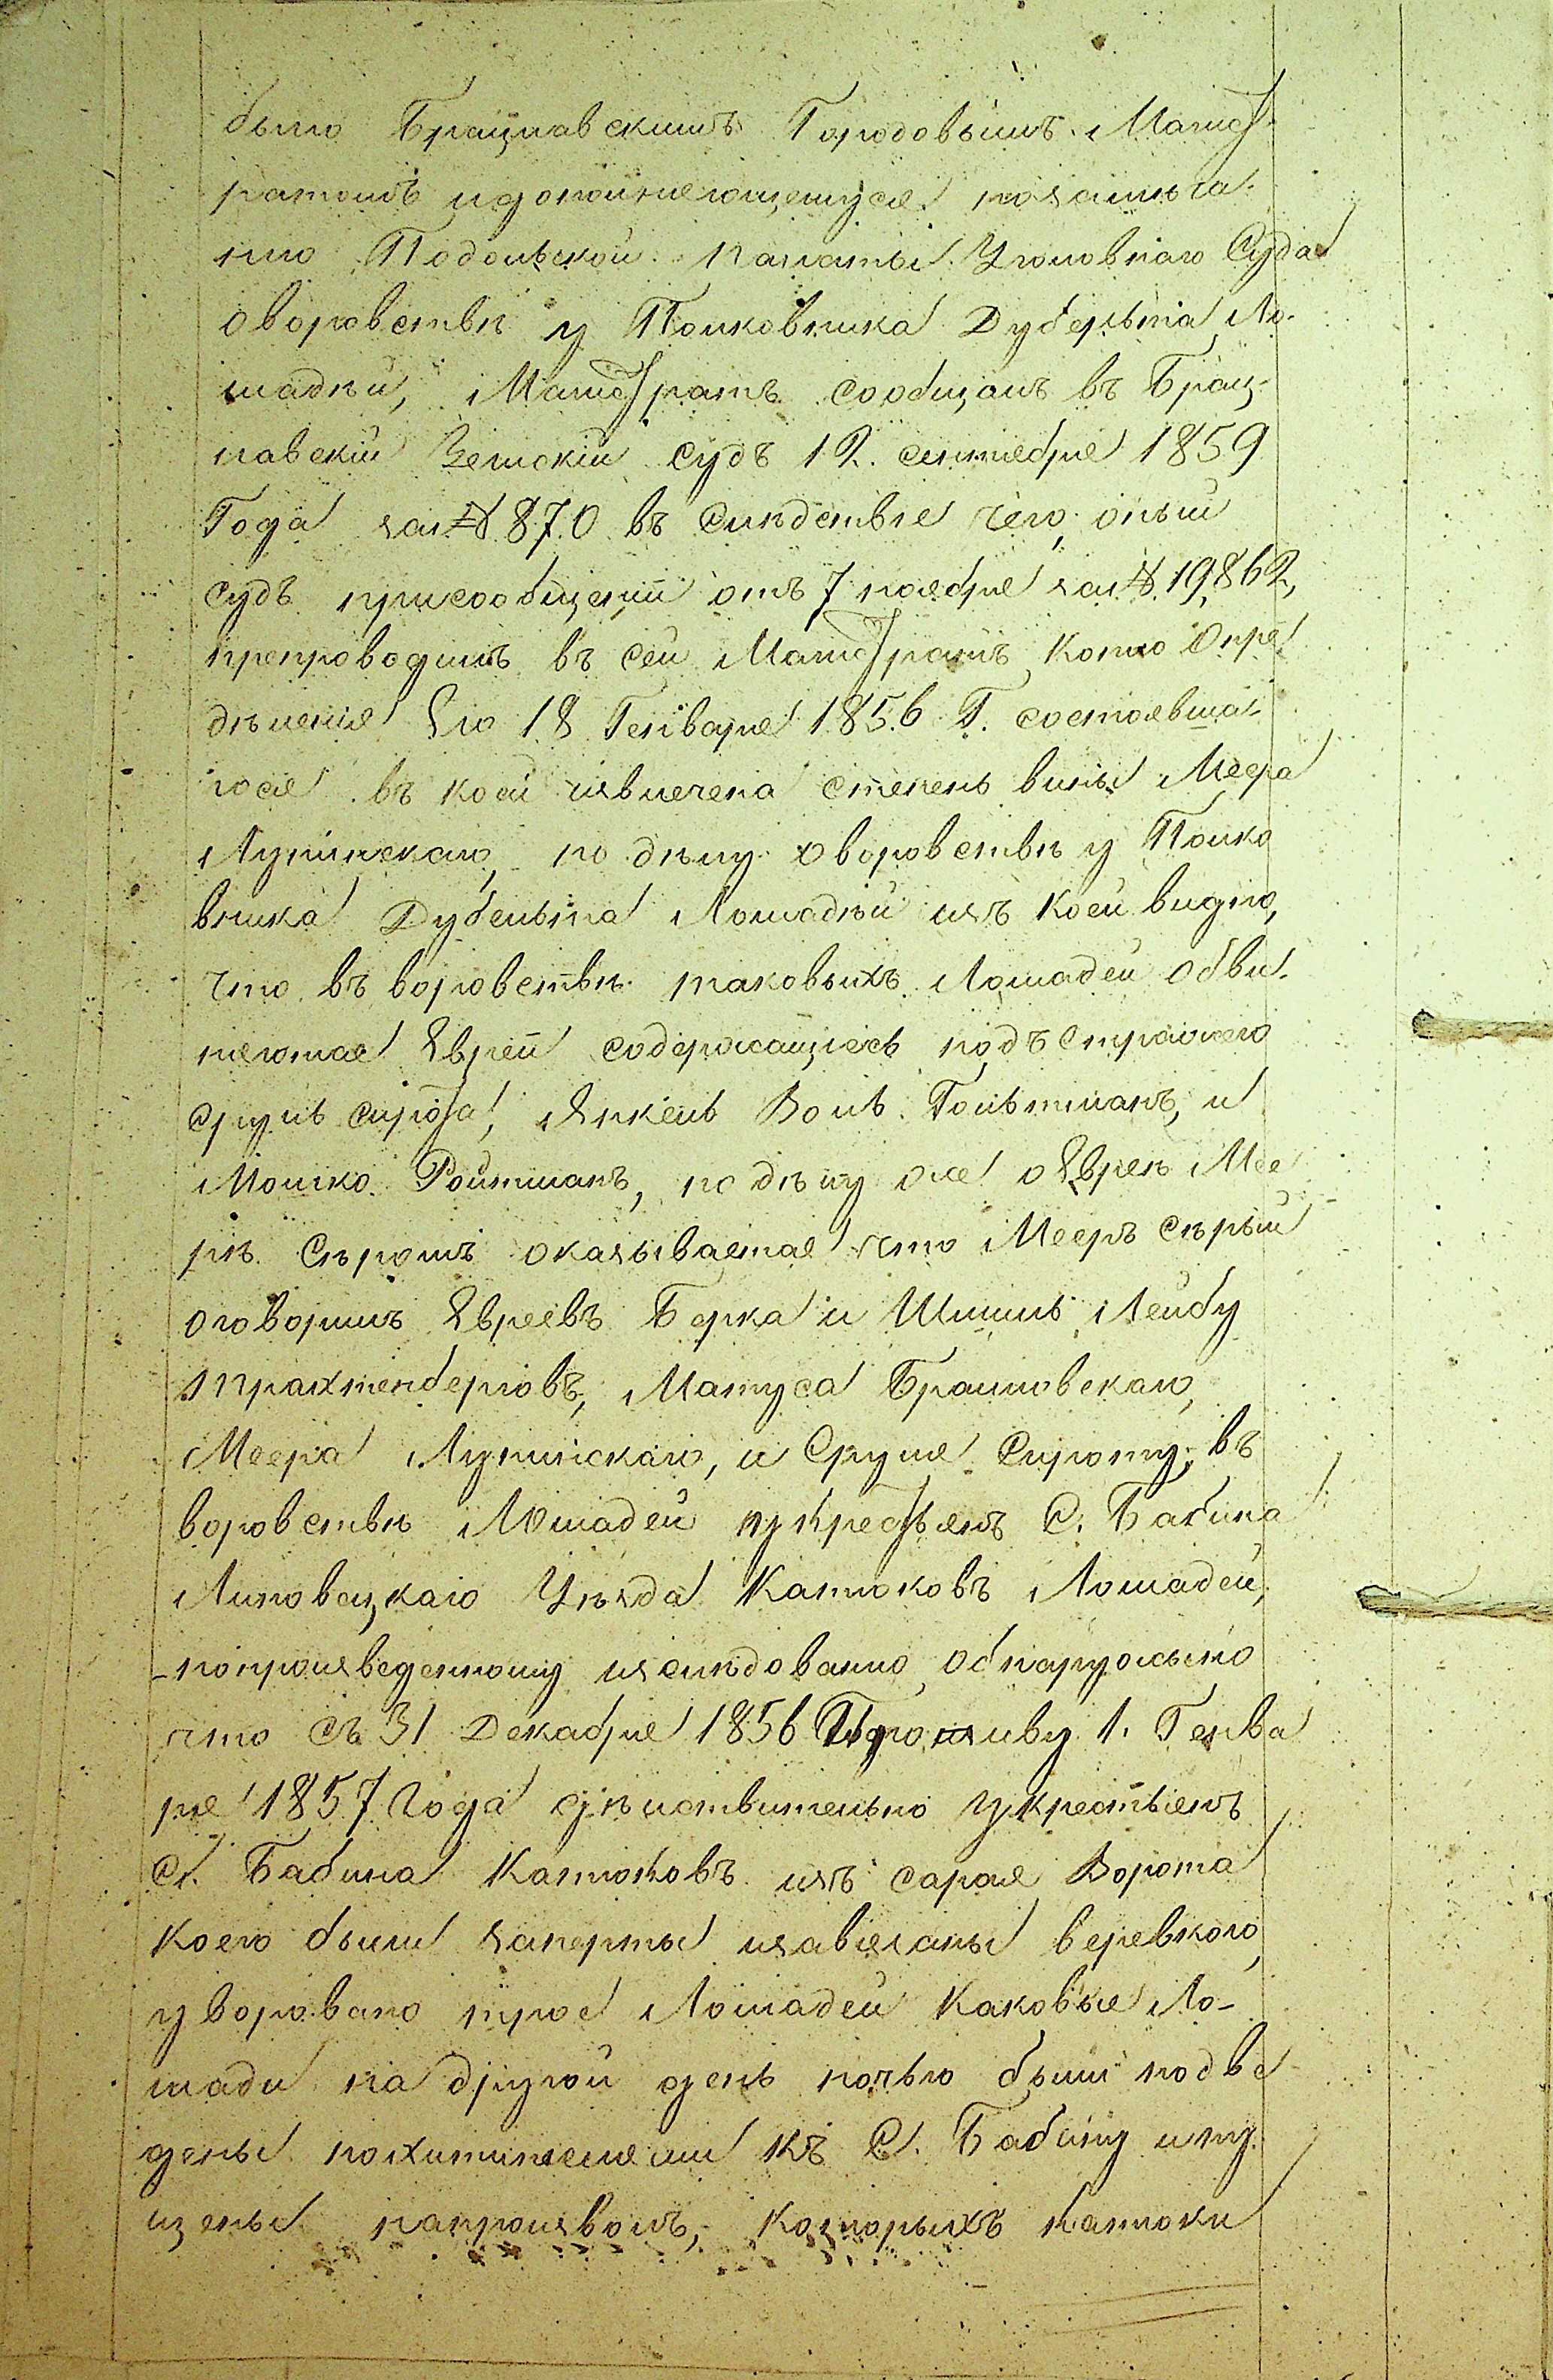 было Брацлавскимъ Городовымъ Магист
ратомъ идополняющемуся позамѣча
нію Подольской Палаты Уголовнаго Суда
оворовствѣ у Полковника Дубельта Ло-
шадѣй, Магистратъ сообщалъ въ Брац-
лавскій Земскій судъ 12. сентября 1859
Года за № 870 въ Слѣдствіе чего, оный
судъ присообщеніи отъ 7 ноября за № 19,862,
препроводилъ въ сей Магистратъ Копію Опре
дѣленія Его 18 Генваря 1856 Г. состоявша-
гося въ коей извлечена степень вины Меера
Лупинскаго, по дѣлу оворовствѣ у Полко
вника Дубельта Лошадѣй изъ коей видно,
что въ воровствѣ таковыхъ Лошадей обви-
няются Евреи содержащіесь подъ стражею
Сруль Сирота, Янкель Воль Гольтманъ, и
Мошко Ройтманъ, по дѣлу же о Евреѣ Мее
рѣ Сѣромъ оказывается что Мееръ Сѣрый
оговорилъ Евреевъ Берка и Шмиль Лейбу
трахтенберговъ, Матуса Браиловскаго,
Меера Лупинскаго, и Сруля Сироту, въ
воровствѣ Лошадей укрестьянъ С. Бабина
Липовецкаго Уѣзда Катюковъ Лошадей,
попроизведенному изслѣдованію обнаружено
что съ 31 Декабря 1856 Противу 1. Генва
ря 1857 Года дѣйствительно укрестьянъ
С. Бабина Катюковъ изъ сарая Ворота
коего были заперты изавязаны веревкою,
уворовано трое Лошадей каковые Ло-
шади на другой день ночью были подве
дены похитителями къ С. Бабину ипу
щены напроизволъ, которыхъ катюки